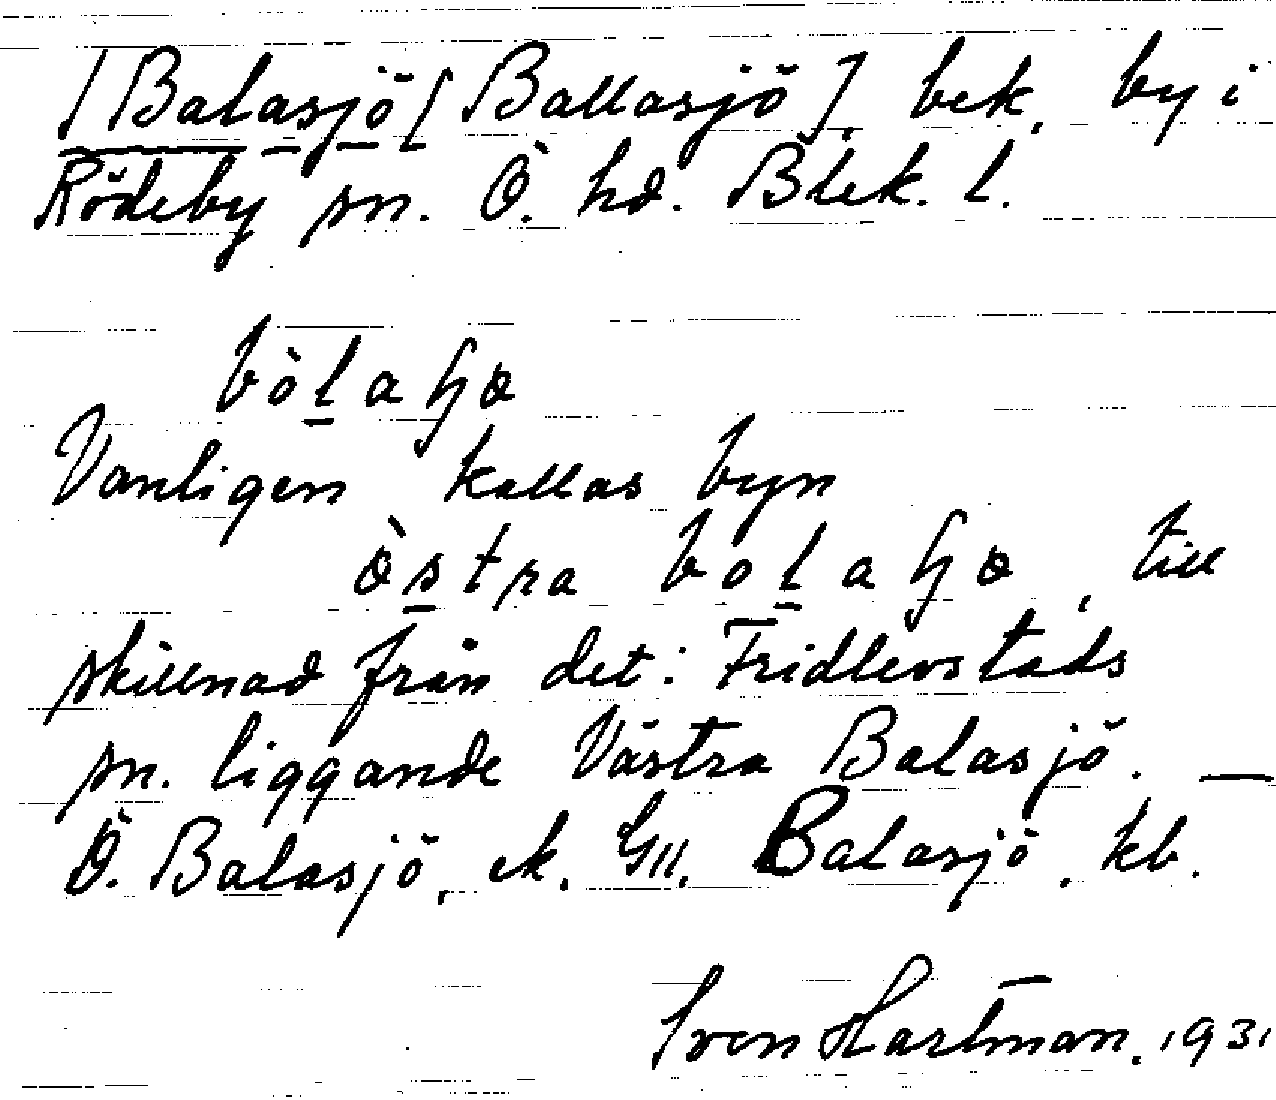 [Balasjö [Ballasjö], bek. by i
Rödeby sn. Ö. hd. Blek. l.
bòlaɧø
Vanligen kallas byn
ø̀stra bolaɧø, till
skillnad från det i Fridlevstads
sn. liggande Västra Balasjö. —
Ö. Balasjö, ek. Gll. Balasjö, kb.
Sven Hartman. 1931